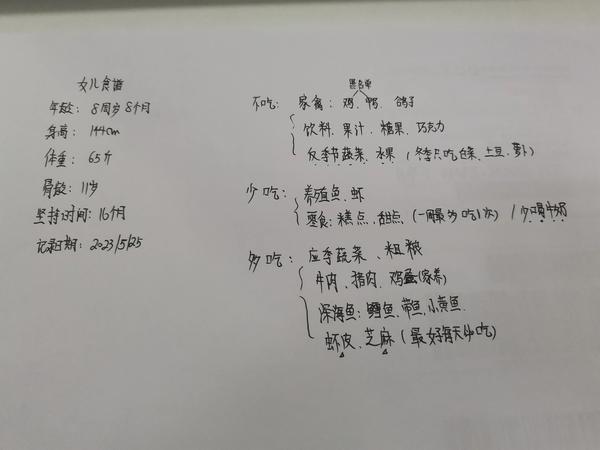 女儿食谱
年龄：8周岁8个月
身高：144cm
体重：65斤
骨龄：11岁
坚持时间：16个月
记录日期：2023/5/25
黑名单
不吃：家禽：鸡、鸭、鸽子
饮料、果汁、糖果、巧克力
反季节蔬菜、水果（冬季只吃白菜、土豆、萝卜）
少吃：养殖鱼、虾
零食：糕点、甜点（一周最多吃1次） / 少喝牛奶
多吃：应季蔬菜、粗粮
牛肉、猪肉、鸡蛋(家养)
深海鱼：鳕鱼、带鱼、小黄鱼
虾皮、芝麻（最好每天都吃）